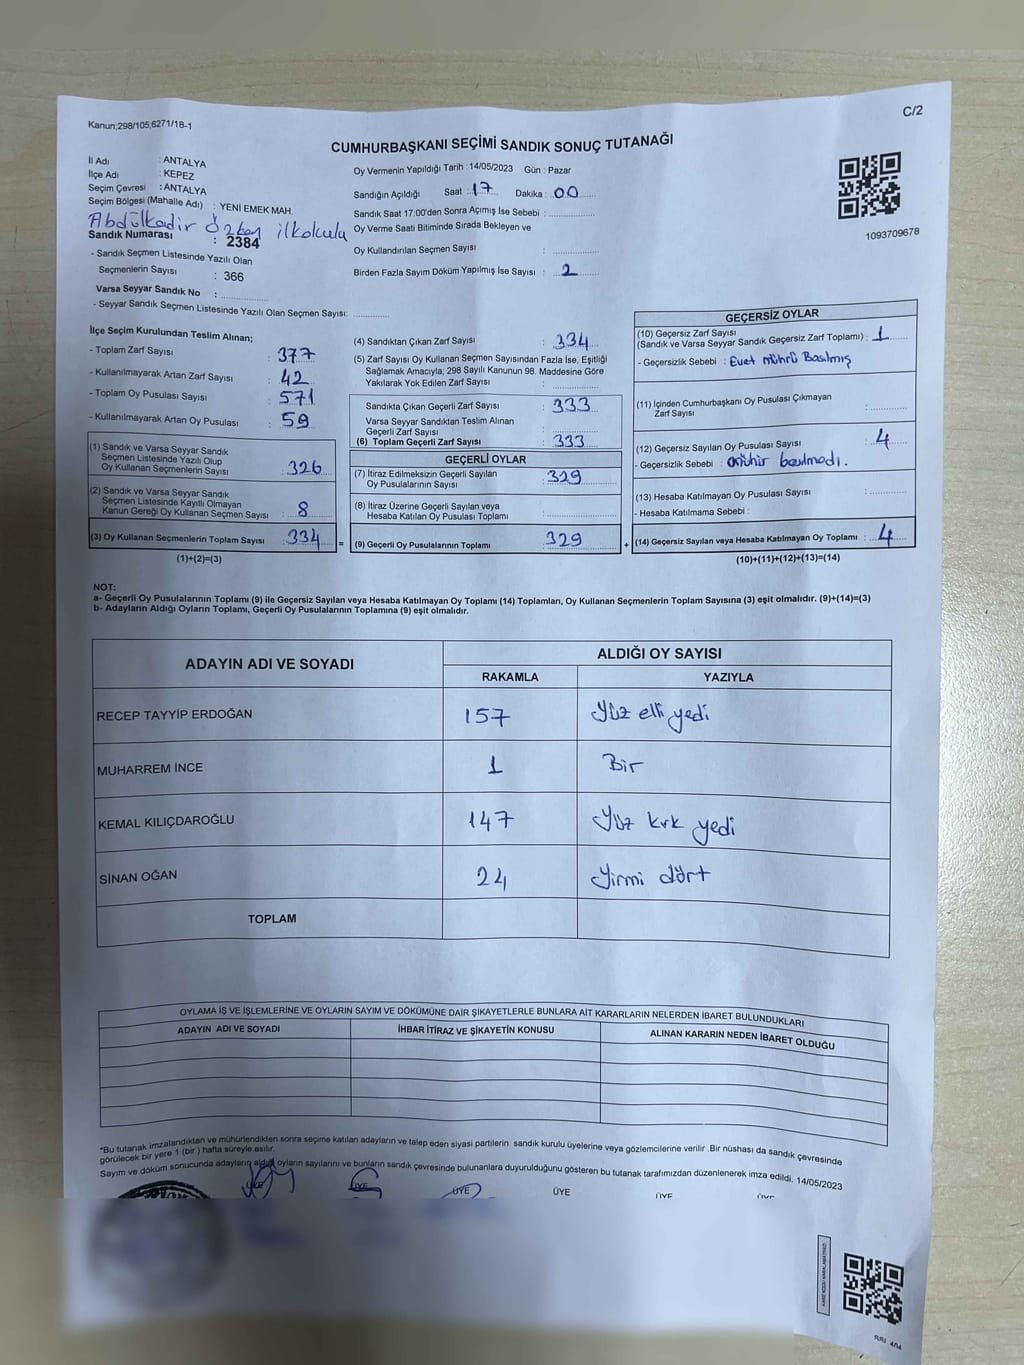 C/2
Kanun;298/105;6271/18-1
CUMHURBAŞKANI SEÇİMİ SANDIK SONUÇ TUTANAĞI
İl Adı : ANTALYA
İlçe Adı : KEPEZ
Seçim Çevresi : ANTALYA
Seçim Bölgesi (Mahalle Adı) : YENİ EMEK MAH.
Abdülkadir Özkan ilkokulu
Sandık Numarası : 2384
- Sandık Seçmen Listesinde Yazılı Olan
Seçmenlerin Sayısı : 366
Varsa Seyyar Sandık No : ...............
- Seyyar Sandık Seçmen Listesinde Yazılı Olan Seçmen Sayısı: ............
Oy Vermenin Yapıldığı Tarih : 14/05/2023 Gün : Pazar
Sandığın Açıldığı Saat : 17 Dakika : 00
Sandık Saat 17:00'den Sonra Açımış İse Sebebi : ...............
Oy Verme Saati Bitiminde Sırada Bekleyen ve
Oy Kullandırılan Seçmen Sayısı : ...............
Birden Fazla Sayım Döküm Yapılmış İse Sayısı : 2
1093709678
İlçe Seçim Kurulundan Teslim Alınan;
- Toplam Zarf Sayısı : 377
- Kullanılmayarak Artan Zarf Sayısı : 42
- Toplam Oy Pusulası Sayısı : 571
- Kullanılmayarak Artan Oy Pusulası : 59
(1) Sandık ve Varsa Seyyar Sandık
Seçmen Listesinde Yazılı Olup
Oy Kullanan Seçmenlerin Sayısı : 326
(2) Sandık ve Varsa Seyyar Sandık
Seçmen Listesinde Kayıtlı Olmayan
Kanun Gereği Oy Kullanan Seçmen Sayısı : 8
(3) Oy Kullanan Seçmenlerin Toplam Sayısı : 334 =
(1)+(2)=(3)
(4) Sandıktan Çıkan Zarf Sayısı : 334
(5) Zarf Sayısı Oy Kullanan Seçmen Sayısından Fazla İse, Eşitliği
Sağlamak Amacıyla; 298 Sayılı Kanunun 98. Maddesine Göre
Yakılarak Yok Edilen Zarf Sayısı : ...............
Sandıkta Çıkan Geçerli Zarf Sayısı : 333
Varsa Seyyar Sandıktan Teslim Alınan
Geçerli Zarf Sayısı : ...............
(6) Toplam Geçerli Zarf Sayısı : 333
GEÇERLİ OYLAR
(7) İtiraz Edilmeksizin Geçerli Sayılan
Oy Pusulalarının Sayısı : 329
(8) İtiraz Üzerine Geçerli Sayılan veya
Hesaba Katılan Oy Pusulası Toplamı : ...............
(9) Geçerli Oy Pusulalarının Toplamı : 329 +
GEÇERSİZ OYLAR
(10) Geçersiz Zarf Sayısı
(Sandık ve Varsa Seyyar Sandık Geçersiz Zarf Toplamı) : 1
- Geçersizlik Sebebi : Evet mührü Basılmış
(11) İçinden Cumhurbaşkanı Oy Pusulası Çıkmayan
Zarf Sayısı : ............
(12) Geçersiz Sayılan Oy Pusulası Sayısı : 4
- Geçersizlik Sebebi : mühür basılmadı.
(13) Hesaba Katılmayan Oy Pusulası Sayısı : ............
- Hesaba Katılmama Sebebi :
(14) Geçersiz Sayılan veya Hesaba Katılmayan Oy Toplamı : 4
(10)+(11)+(12)+(13)=(14)
NOT:
a- Geçerli Oy Pusulalarının Toplamı (9) ile Geçersiz Sayılan veya Hesaba Katılmayan Oy Toplamı (14) Toplamları, Oy Kullanan Seçmenlerin Toplam Sayısına (3) eşit olmalıdır. (9)+(14)=(3)
b- Adayların Aldığı Oyların Toplamı, Geçerli Oy Pusulalarının Toplamına (9) eşit olmalıdır.
ADAYIN ADI VE SOYADI ALDIĞI OY SAYISI
RAKAMLA YAZIYLA
RECEP TAYYİP ERDOĞAN 157 Yüz elli yedi
MUHARREM İNCE 1 Bir
KEMAL KILIÇDAROĞLU 147 Yüz kırk yedi
SİNAN OĞAN 24 Yirmi dört
TOPLAM
OYLAMA İŞ VE İŞLEMLERİNE VE OYLARIN SAYIM VE DÖKÜMÜNE DAİR ŞİKAYETLERLE BUNLARA AİT KARARLARIN NELERDEN İBARET BULUNDUKLARI
ADAYIN ADI VE SOYADI İHBAR İTİRAZ VE ŞİKAYETİN KONUSU ALINAN KARARIN NEDEN İBARET OLDUĞU
*Bu tutanak imzalandıktan ve mühürlendikten sonra seçime katılan adayların ve talep eden siyasi partilerin sandık kurulu üyelerine veya gözlemcilerine verilir .Bir nüshası da sandık çevresinde
görülecek bir yere 1 (bir ) hafta süreyle asılır.
Sayım ve döküm sonucunda adayların aldığı oyların sayılarını ve bunların sandık çevresinde bulunanlara duyurulduğunu gösteren bu tutanak tarafımızdan düzenlenerek imza edildi. 14/05/2023
ÜYE ÜYE ÜYE ÜYE ÜYE